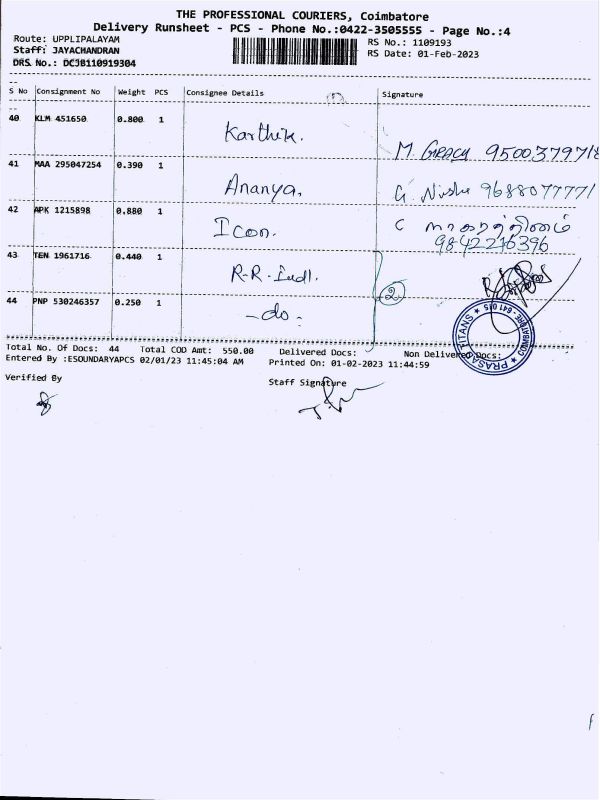 THE PROFESSIONAL COURIERS, Coimbatore
Delivery Runsheet - PCS - Phone No.:0422-3505555 - Page No.:4
Route: UPPLIPALAYAM
RS No.: 1109193
Staff: JAYACHANDRAN
RS Date: 01-Feb-2023
DRS No.: DCJB110919304
S No Consignment No Weight PCS Consignee Details Signature
40 KLM 451650 0.800 1 Karthik. M. 9500379718
41 MAA 295047254 0.390 1 Ananya. G. Nisha 9688077771
42 APK 1215898 0.880 1 Icon. C நாகரத்தினம்
9842276396
43 TEN 1961716 0.440 1 R-R-Indl.
2
44 PNP 530246357 0.250 1 -do-
PRASA TITANS * COIMBATORE - 641 015 *
Total No. Of Docs: 44 Total COD Amt: 550.00 Delivered Docs: Non Delivered Docs:
Entered By :ESOUNDARYAPCS 02/01/23 11:45:04 AM Printed On: 01-02-2023 11:44:59
Verified By Staff Signature